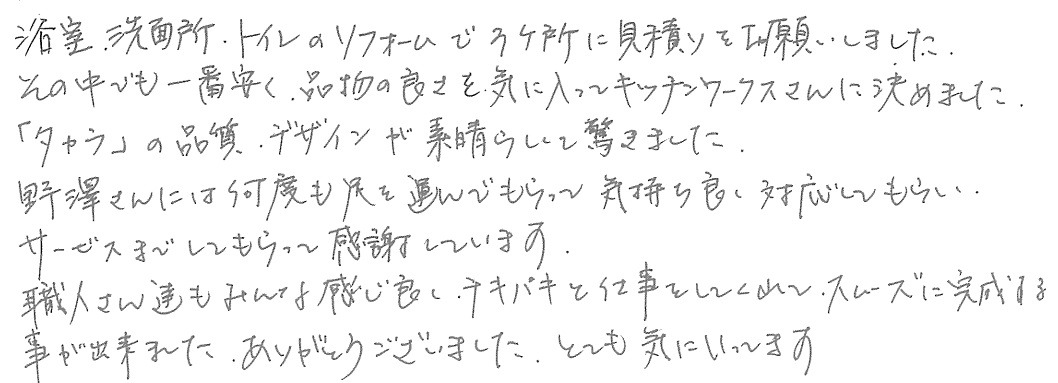 浴室、洗面所、トイレのリフォームで3ケ所に見積りをお願いしました。
その中でも一番安く、品物の良さを気に入ってキッチンワークスさんに決めました。
「タカラ」の品質、デザインが素晴らしくて驚きました。
野澤さんには何度も足を運んでもらって気持ち良く対応してもらい、
サービスまでしてもらって感謝しています。
職人さん達もみんな感じ良く、テキパキと仕事をしてくれて、スムーズに完成する
事が出来ました。ありがとうございました。とても気にいってます